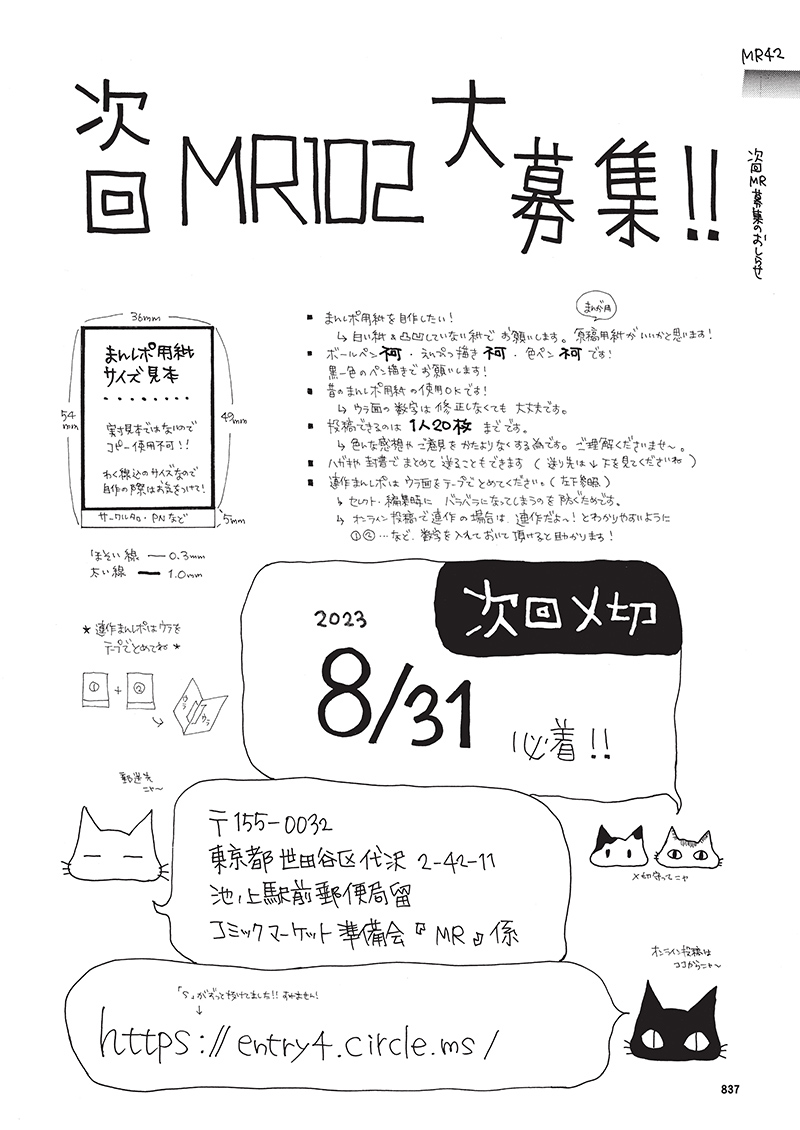 MR42
次回MR募集のおしらせ
次回 MR102 大募集!!
36mm
54mm
49mm
5mm
まんレポ用紙
サイズ見本
実寸見本ではないので
コピー使用不可!!
わく線込のサイズなので
自作の際はお気をつけて!
サークルNo・PNなど
ほそい線 ― 0.3mm
太い線 ― 1.0mm
まんが用
▪ まんレポ用紙を自作したい!
↳ 白い紙&凸凹していない紙で お願いします。原稿用紙がいいかと思います!
▪ ボールペン不可・えんぴつ描き不可・色ペン不可です!
黒一色のペン描きでお願いします!
▪ 昔のまんレポ用紙の使用OKです!
↳ ウラ面の数字は修正しなくても 大丈夫です。
▪ 投稿できるのは 1人20枚 までです。
↳ 色んな感想やご意見をかたよりなくする為です。ご理解くださいませ〜。
▪ ハガキや封書でまとめて送ることもできます(送り先は↓下を見てくださいね)
▪ 連作まんレポはウラ面をテープでとめてください。(左下参照)
↳ セレクト・編集時に バラバラになってしまうのを防ぐためです。
↳ オンライン投稿で連作の場合は、連作だよ〜!とわかりやすいように
①②…など、数字を入れておいて頂けると助かります!
★ 連作まんレポはウラを
テープでとめてね ★
① + ②
ウラ ウラ
次回〆切
2023
8/31 必着!!
〆切守ってニャ
郵送先
ニャ〜
〒155-0032
東京都世田谷区代沢 2-42-11
池ノ上駅前郵便局留
コミックマーケット準備会『MR』係
オンライン投稿は
ココからニャ〜
「s」がずっと抜けてました!!すみません!
↓
https://entry4.circle.ms/
837